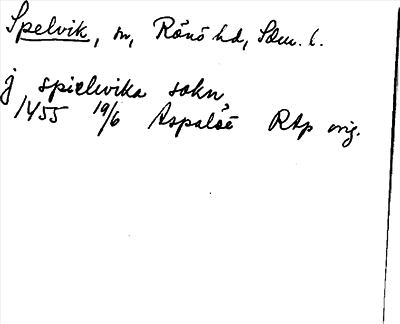 Spelvik, sn, Rönö hd, Södm. l.
j spielwika sokn
1455 19/6 Aspaløø RAp orig.